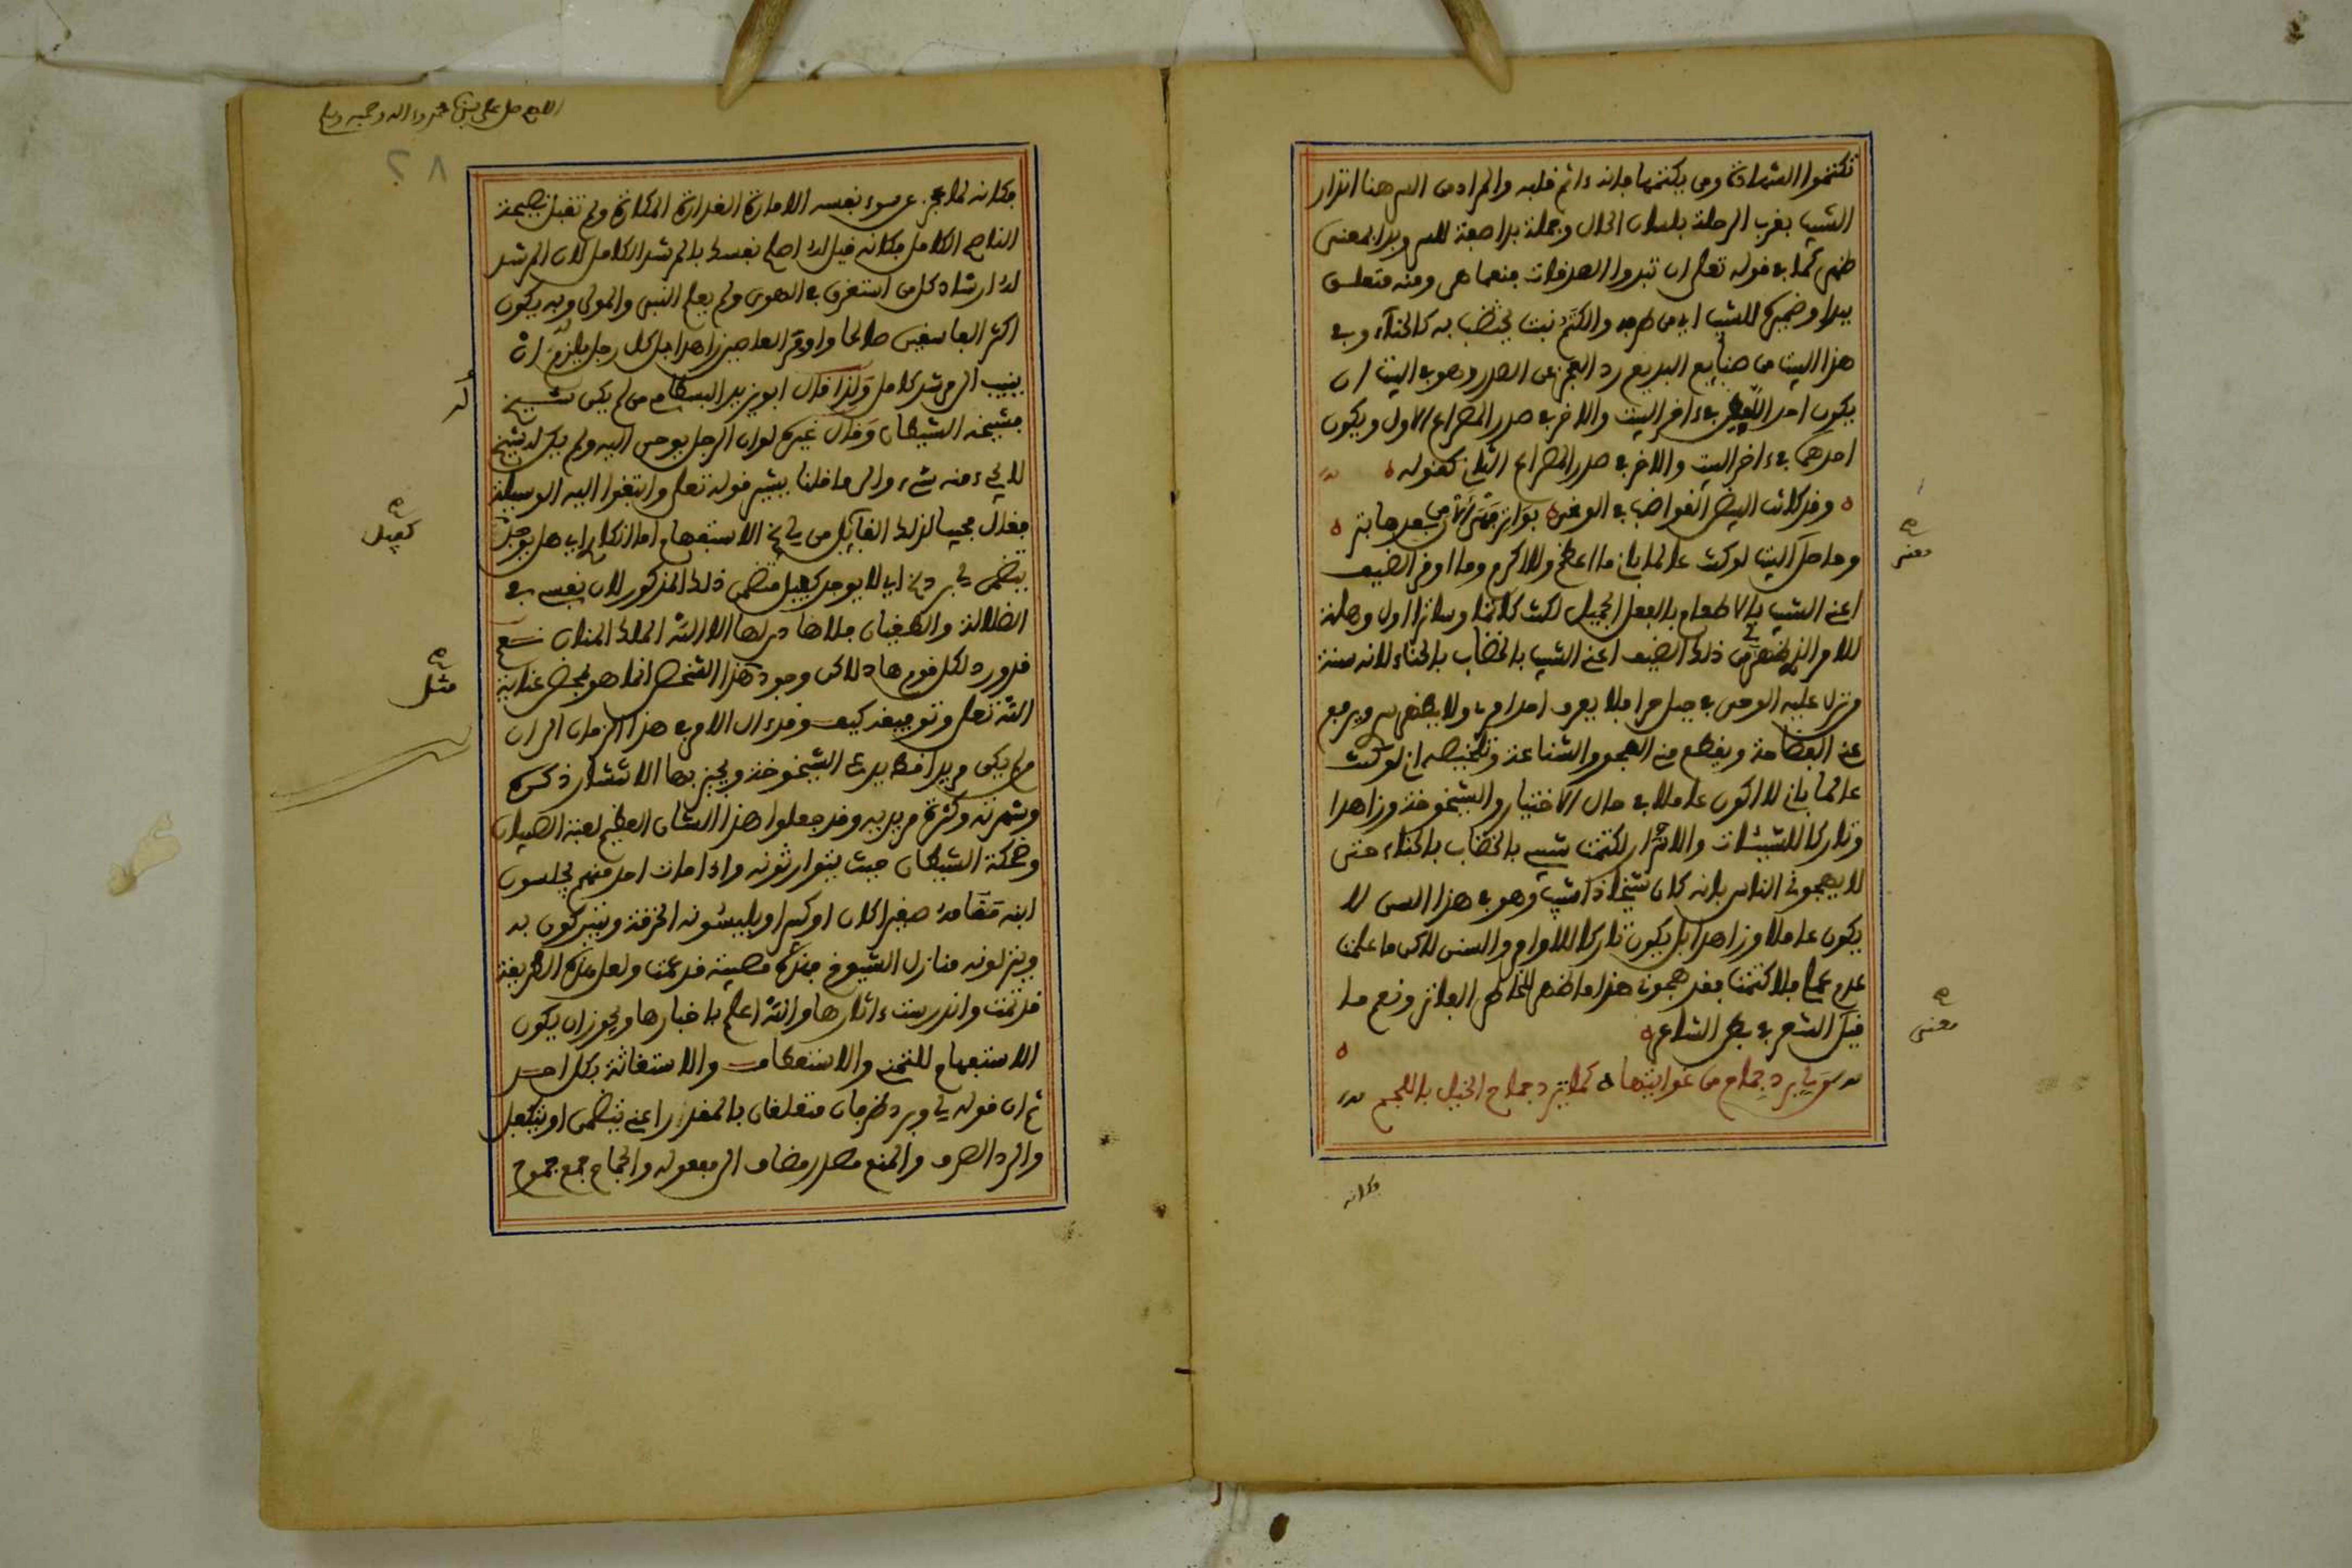 تكتموا الشهادة ومن يكتمها فإنه ءاثم قلبه والمراد من السر هنا انذار
الشيب بقرب الرحلة بلسان الحال وجملة بدا صفة للسر وبدا بمعنى
ظهر كما في قوله تعالى ان تبدوا الصدقات فنعما هي ومنه متعلق
ببدا وضميره للشيب اي من ظهر والكتم نبت يختضب به كالحناء وفي
هذا البيت من صنايع البديع رد العجز على الصدر وهو في البيت ان
يكون احد اللفظين في ءاخر البيت والاخر في صدر المصراع الاول ويكون
احدهما في ءاخر البيت والاخر في صدر المصراع الثاني كقوله
وقد كانت البيض القواضب في الوغى بواتر فهي الان من بعده بتر
وحاصل البيت لو كنت عالما باني ما اعظم ولا اكرم وما اوقر الضيف
اعني الشيب بالاطعام بالفعل الجميل لكنت كاتما وساترا اول وهلة
للامر الذي ظهر لي من ذلك الضيف اعني الشيب بالخضاب بالحناء لانه سنة
من نزل عليه الوحي في جبل حرا فلا يعرف احد امري ولا يظهر سري ويرفع
عني الفظاعة ويقطع مني الهجو والشناعة وتلخيصه اني لو كنت
عالما باني لا اكون عاملا في حال الاختيار والشيخوخة وزاهدا
وتاركا للسيئات والاشرار لكتمت شيبي بالخضاب بالحناء حتى
لا يهجوني الناس بانه كان شيخا ذا شيب وهو في هذا السن لا
يكون عاملا وزاهدا بل يكون تاركا للاوامر والسنن لاكن ما علمت
عدم عملي فلا كتمت فقد هجوت هذا ما ظهر للخاطر الفاتر ونعم ما
قيل الشعر في بطن الشاعر
من لي برد جماح من غوايتها كما يرد جماح الخيل باللجم
معنى
معنى
فكانه
اللهم صل على سيدنا محمد وءاله وصحبه وسلم
٢٨
فكانه لما عجز عن سوء نفسه الامارة الغدارة المكارة ولم تقبل نصيحة
الناصح الكامل فكانه قيل له اصلح نفسك بالمرشد الكامل لان المرشد
له ارشاد كل من استغرق في الهوى ولم يعلم النبي والمولى وبه يكون
اكثر الفاسقين صالحا واوفر العاصين زاهدا بل كل رجل يلزم له ان
ينيب الى مرشد كامل ولذا قال ابو يزيد البسطامي من لم يكن شيخ
فشيخه الشيطان وقال غيره لو ان الرجل يوحى اليه ولم يكن له شيخ
لا يجيء منه شيء والى ما قلنا يشير قوله تعالى وابتغوا اليه الوسيلة
فقال مجيبا لذلك القايل من لي الخ الاستفهام اما انكاري اي هل يوجد
يتضمن لي برد الخ اي لا يوجد كفيل متضمن ذلك المذكور لان نفسه في
الضلالة والطغيان فلا هادي لها الا الله الملك المنان نعم
قد ورد لكل قوم هاد لاكن وجود هذا الشخص انما هو بمحض عناية
الله تعالى وتوفيقه كيف وقد ءال الامر في هذا الزمان الى ان
من لم يكن مريدا قط يدعي الشيخوخة ويجيز بها الا انتشار ذكره
وشهرته وكثرة مريديه وقد جعلوا هذا الشان العظيم لعبة الصبيان
وضحكة الشيطان حيث يتوارثونه واذا مات احد منهم يجلسون
ابنه مقامه صغيرا كان او كبيرا ويلبسونه الخرقة ويتبركون به
وينزلونه منازل الشيوخ فهذه مصيبة قد عمت ولعل هذه الطريقة
قد تمت واندرست ءاثارها والله اعلم باخبارها ويجوز ان يكون
الاستفهام للتمني والاستعطاف والاستغاثة بكل احد
ثم ان قوله لي وبرد ظرفان متعلقان بالمقدر اعني يتضمن او يتكفل
والرد الصرف والمنع مصدر مضاف الى مفعوله والجماح جمع جموح
له
كفيل
مثل